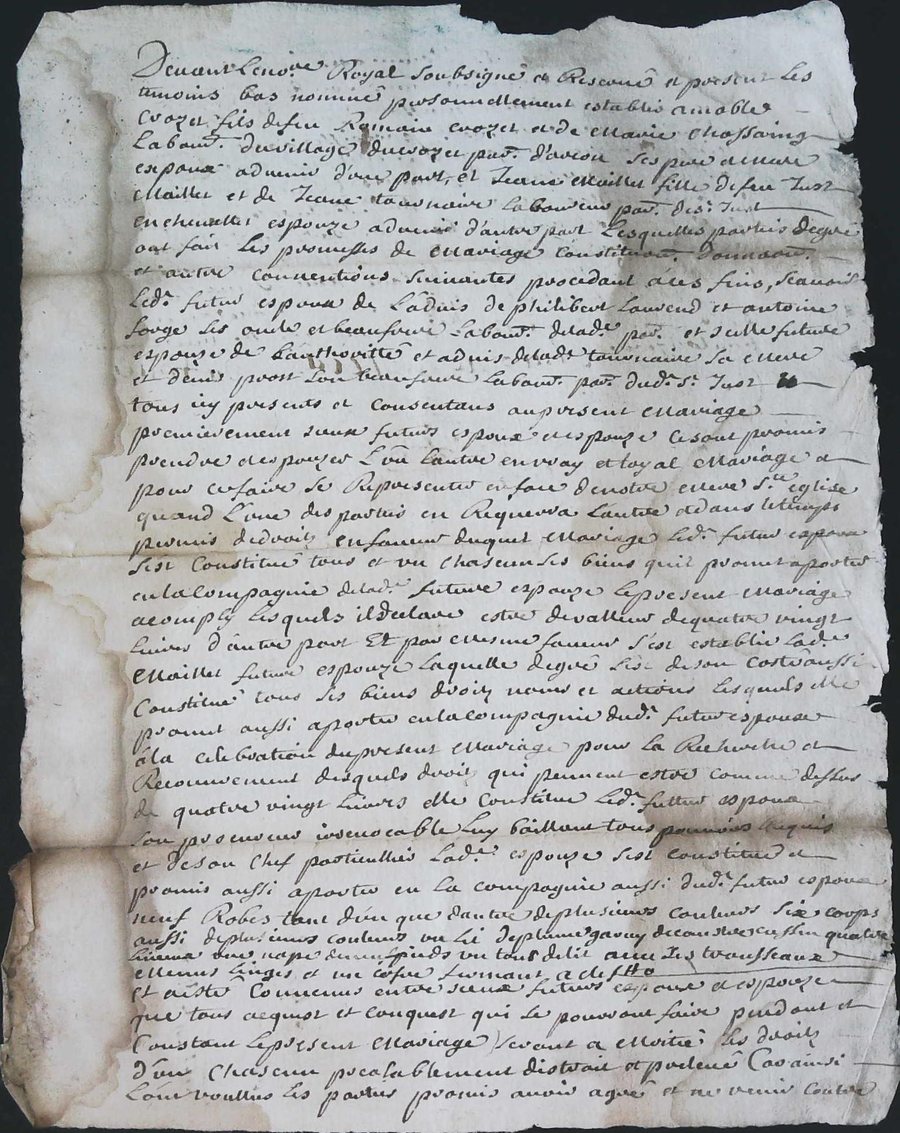 Devant Le no.re Royal Soubsigné et Reservé et present Les
temoins bas nommé personnellement establis amable
Crozet fils de feu Romain Crozet et de Marie Chossaing
Labour. du village du crozet par. d'arcon ses pere et mere
espoux advenir d'une part, et Jeane Maillet fille de feu Just
Maillet et de Jeane tournaire Laboureur par. de s.t Just
en chevallet espouze advenir d'autre part Lesquelles parties de gre
ont fait Les promesses de Mariage Constitution. donnaon.
et autre Conventions Suivantes procedant a ces fins, scavoir
Led.t futur espoux de L'advis de philibert Laurend et antoine
forge ses oncle et beaufrere Labour. de lad.e par. et celle future
espouze de L'authoritté et advis de lad.e tournaire sa Mere
et denis prost son beaufrere Labour. par. dud.t S.t Just
tous icy presents et Consentans au present Mariage
premierement sieux futurs espoux et espouze Ce sont promis
prendre et espouzer L'un L'autre en vray et loyal Mariage et
pour ce faire se Representer en face de notre Mere S.te eglise
quand L'une des parties en Requerra L'autre et dans le temps
permis de droit, en faveur duquel Mariage Led.t futur espoux
s'est Constitué tous et un chascun ses biens qu'il promet aporter
en la Compagnie de lad.e future espouze Le present Mariage
acomply Lesquels il declare estre de valleur de quatre vingt
Livres d'autre part Et par mesme faveur s'est establie Lad.e
Maillet future espouze Laquelle de gré s'est de son costé aussi
Constitué tous ses biens droits noms et actions Lesquels elle
promet aussi aporter en la Compagnie dud.t futur espoux
a la celebration du present Mariage pour La Recherche et
Recouvrement desquels droits qui peuvent estre comme dessus
de quatre vingt Livres elle Constitue Led.t futtur espoux
son procureur irrevocable Luy baillant tous pouvoirs requis
et de son Chef particullier Lad.e espouze s'est constitué et
promis aussi aporter en la Compagnie aussi dud.t futur espoux
neuf Robes tant d'un que d'autre de plusieurs couleurs six corps
aussi de plusieurs couleurs un Lit de plume garny de coultre cussin quatre
Linceux une nape un tour de lit avec Les trousseaux
Menus Linges et un cofre fermant a clef
et a esté Convenus entre sieux futurs espoux et espouze
que tous acquest et conquest qui se pourront faire pendant et
Constant Le present Mariage seront a Moitié Les droits
d'un Chascun precalablement distrait et prelevé Car ainsi
L'ont voullus Les parties promis avoir agreé et ne venir contre